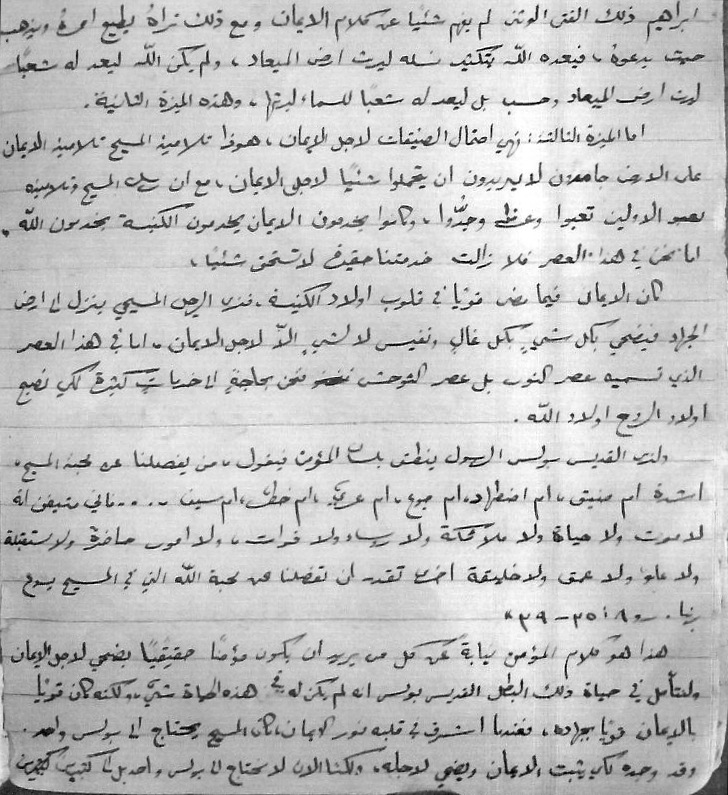 ابراهيم ذلك الفتى الوثني لم يفهم شيئًا عن كلام الايمان ومع ذلك تراهُ يطيع امرهُ ويذهب
حيث يدعوهُ، فيعده اللّه بتكثير نسله ليرث ارض الميعاد، ولم يكن اللّه ليعد له شعبًا
ليرث ارض الميعاد وحسب بل ليعد له شعبًا للسماء ليرثها، وهذه الميزة الثانية.
اما الميزة الثالثة: فهي احتمال الضيقات لاجل الايمان، هوذا تلاميذ المسيح تلاميذ الايمان
على الارض جامدون لا يريدون ان يتحملوا شيئًا لاجل الايمان، مع ان المسيح وتلاميذه
الاولين تعبوا وجدُّوا، وكانوا يخدمون الايمان يخدمون الكنيسة يخدمون اللّه.
اما نحن في هذا العصر فلا زالت خدمتنا حقيرة لا تستحق شيئًا.
كان الايمان فيما مضى قويًا في قلوب اولاد الكنيسة. فنرى الرجل المسيحي ينزل الى ارض
الجهاد فيضحي بكل شيءٍ بكل غالٍ ونفيس لا لشيءٍ الاّ لاجل الايمان. اما في هذا العصر
الذي نسميه عصر النور بل عصر التوحش نحن بحاجةٍ الى خدماتٍ كثيرة لكي نصبح
اولاد الروح اولاد اللّه.
ولنرى القديس بولس الرسول ينطق بلسان المؤمن فيقول، من يفصلنا عن محبة المسيح.
اشدة ام ضيق، ام اضطهاد، ام جوع، ام عري، ام خطر، ام سيف .... فاني متيقن انه
لا موت ولا حياة ولا ملائكة ولا رؤساء ولا قوات، ولا امور حاضرة ولا مستقبلة
ولا علو ولا عمق ولا خليقة اخرى تقدر ان تفصلنا عن محبة اللّه التي في المسيح يسوع
ربنا. رو ٨: ٣٥ - ٣٩"
هذا هو كلام المؤمن نيابةً عن كل من يريد ان يكون مؤمنًا حقيقيًا يضحي لاجل الايمان
ولنتأمل في حياة ذلك البطل القديس بولس انه لم يكن له في هذه الحياة شيء، ولكنه كان قويًا
بالايمان قويًا بجهاده، فعندما اشرق في قلبه نور الايمان، كان المسيح يحتاج الى بولس واحد.
وقد وجده لكي يثبت الايمان ويضحي لاجله، ولكننا الان لا نحتاج الى بولس واحد بل الى كثيرين